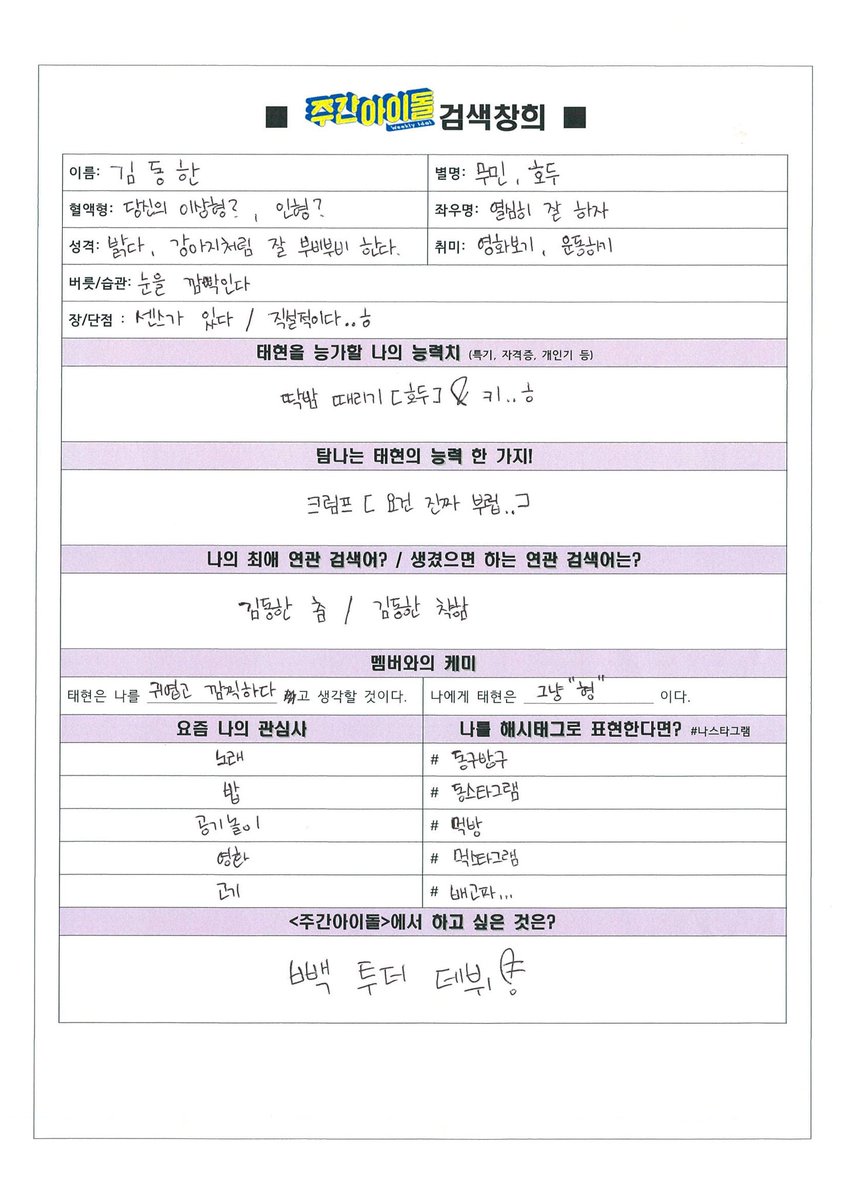 ■ 주간아이돌 Weekly Idol 검색창희 ■
이름: 김동한 별명: 무민, 호두
혈액형: 당신의 이상형?, 인형? 좌우명: 열심히 잘 하자
성격: 밝다, 강아지처럼 잘 부비부비 한다. 취미: 영화보기, 운동하기
버릇/습관: 눈을 깜빡인다
장/단점 : 센스가 있다 / 직설적이다..ㅎ
태현을 능가할 나의 능력치 (특기, 자격증, 개인기 등)
딱밤 때리기 [호두] & 키..ㅎ
탐나는 태현의 능력 한 가지!
크럼프 [ 요건 진짜 부럽..]
나의 최애 연관 검색어? / 생겼으면 하는 연관 검색어는?
김동한 춤 / 김동한 착함
멤버와의 케미
태현은 나를 귀엽고 깜찍하다 고 생각할 것이다. 나에게 태현은 그냥 "형" 이다.
요즘 나의 관심사 나를 해시태그로 표현한다면? #나스타그램
노래 # 동구방구
밥 # 동스타그램
공기놀이 # 먹방
영화 # 먹스타그램
고기 # 배고파...
<주간아이돌>에서 하고 싶은 것은?
빽 투더 데뷔